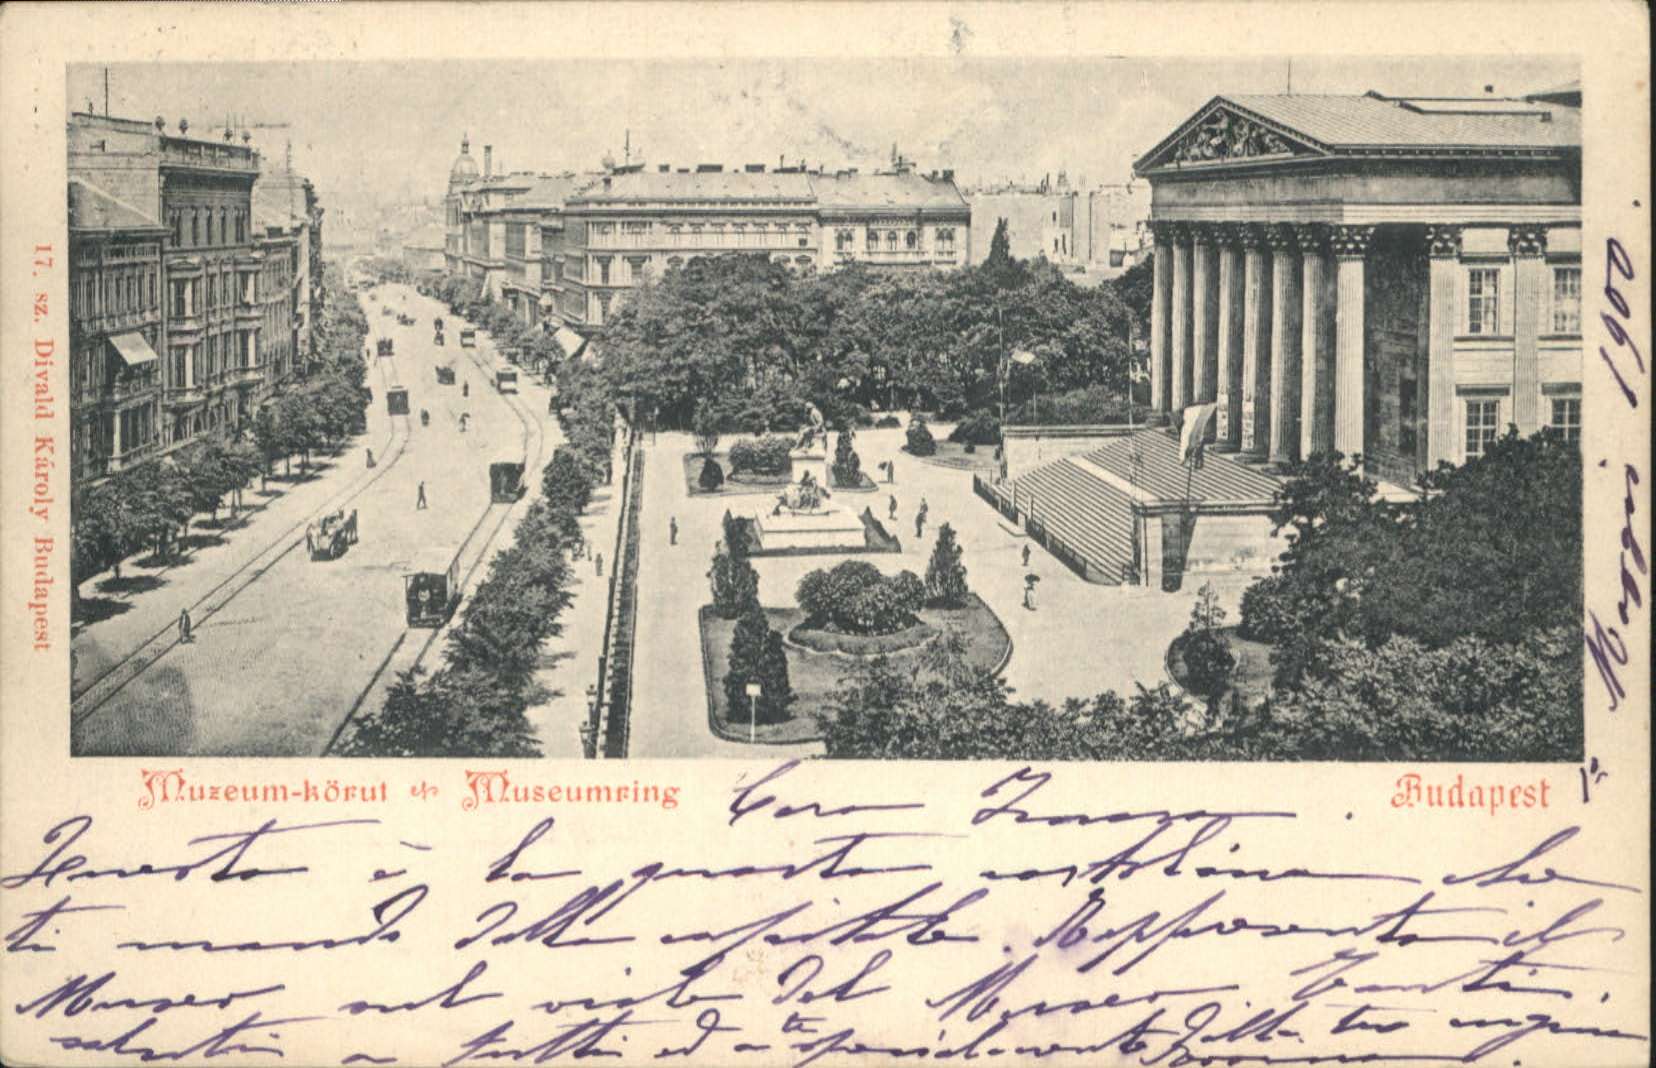 17. sz. Divald Károly Budapest
Muzeum-körut Museumring
Budapest
Cara
Questa è la quarta cartolina che
ti mando dalla capitale. Rappresenta il
Museo sul viale del Museo. Tanti
saluti a tutti ed a te specialmente dalla tua
1900